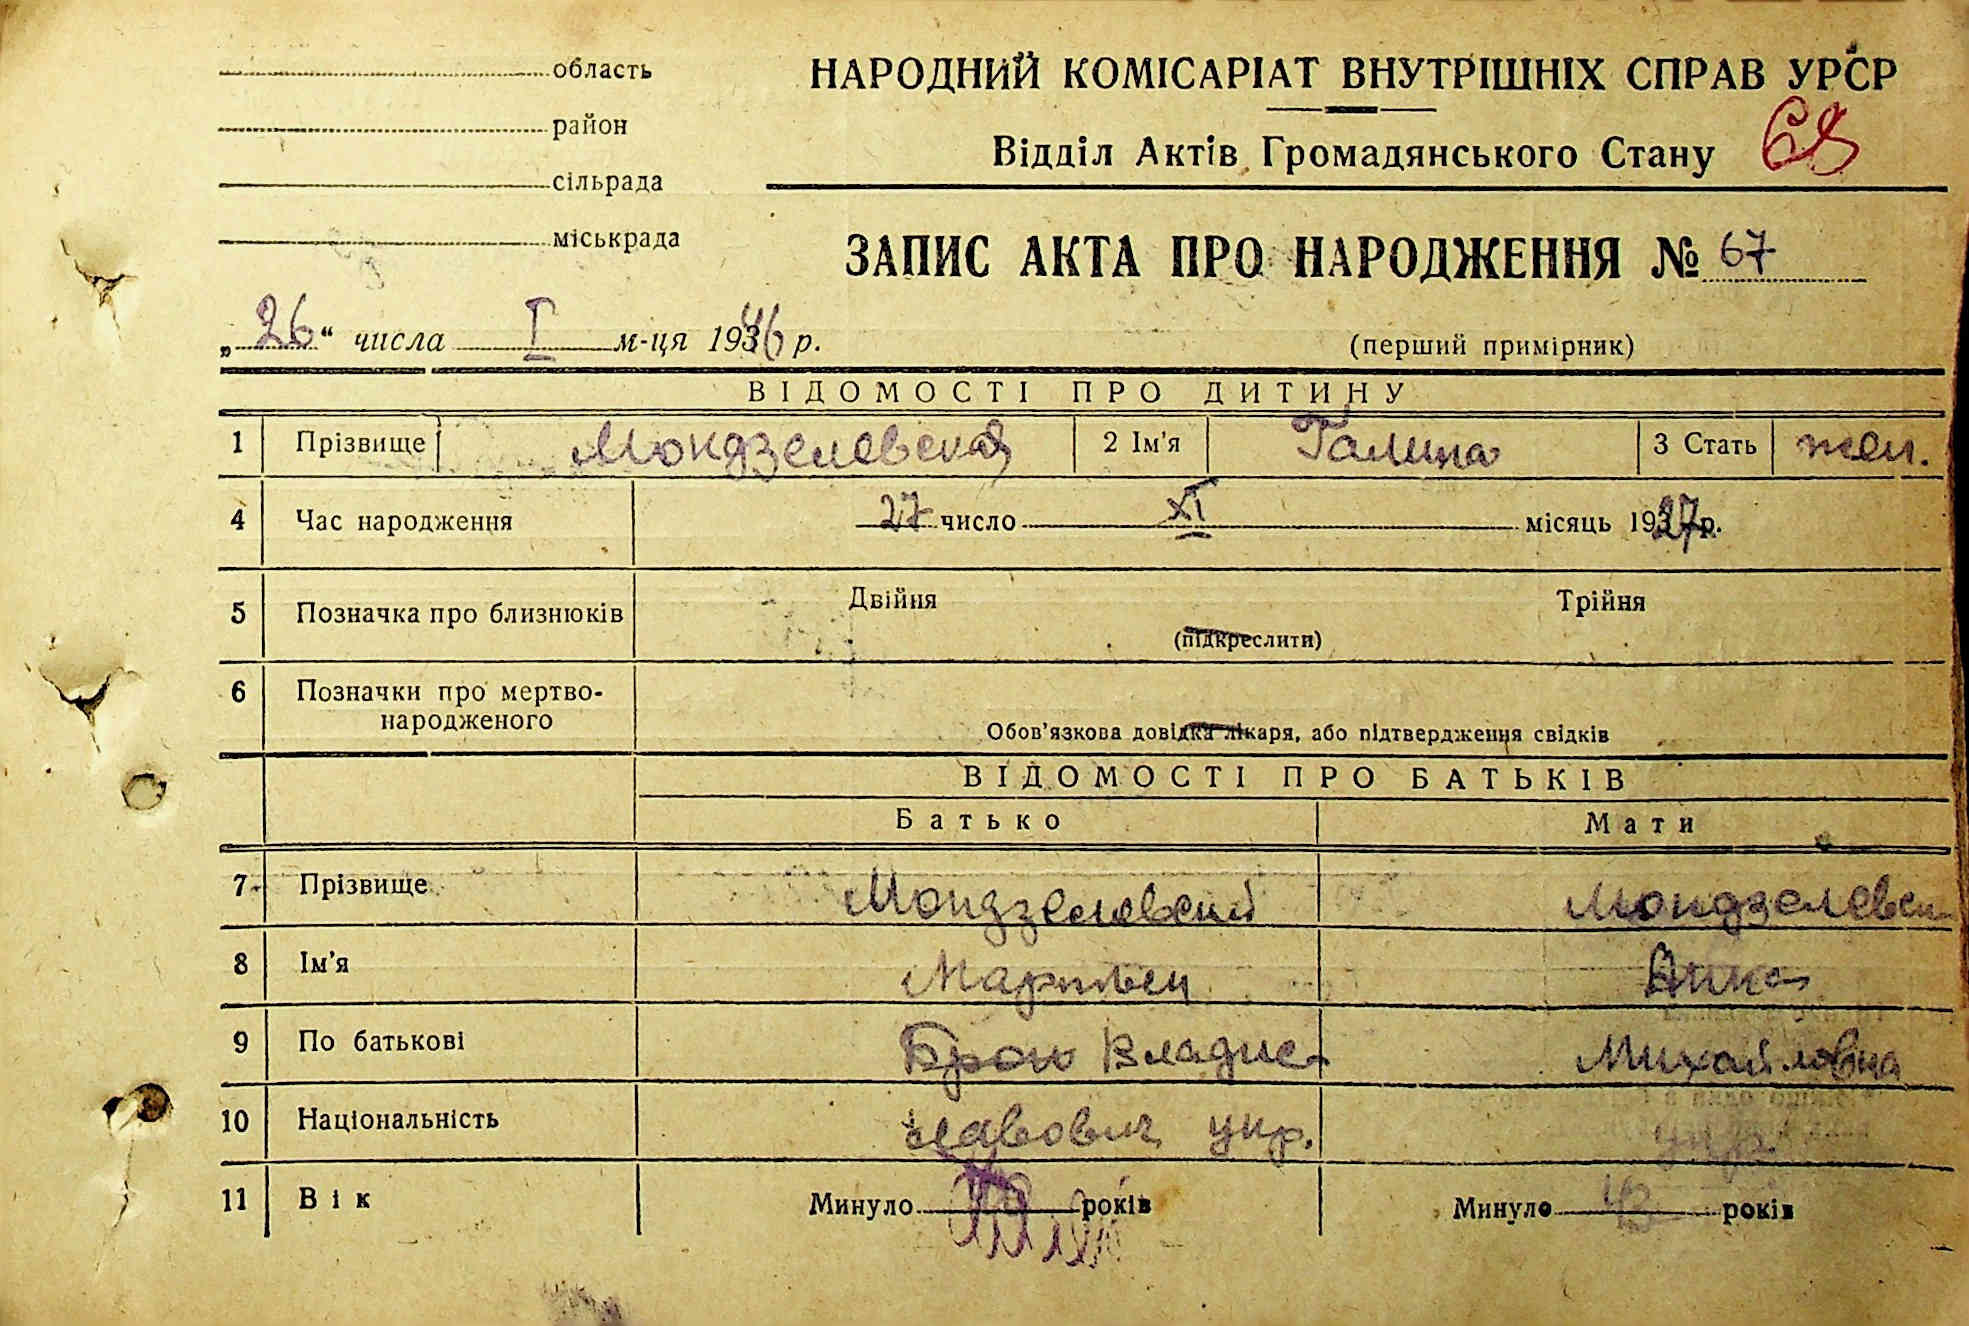 область
НАРОДНИЙ КОМІСАРІАТ ВНУТРІШНІХ СПРАВ УРСР
район
Відділ Актів Громадянського Стану 68
сільрада
міськрада
ЗАПИС АКТА ПРО НАРОДЖЕННЯ № 67
„26“ числа I м-ця 1946 р.
(перший примірник)
ВІДОМОСТІ ПРО ДИТИНУ
1 Прізвище Мондзелевская 2 Ім'я Галина 3 Стать жен.
4 Час народження 27 число XI місяць 1927 р.
5 Позначка про близнюків Двійня Трійня
(підкреслити)
6 Позначки про мертво-
народженого
Обов'язкова довідка лікаря, або підтвердження свідків
ВІДОМОСТІ ПРО БАТЬКІВ
Батько Мати
7 Прізвище Мондзелевский Мондзелевск
8 Ім'я Мартьен Анна
9 По батькові Брон Владис- Михайловна
10 Національність лавович укр. укр.
11 Вік Минуло років Минуло 43 років